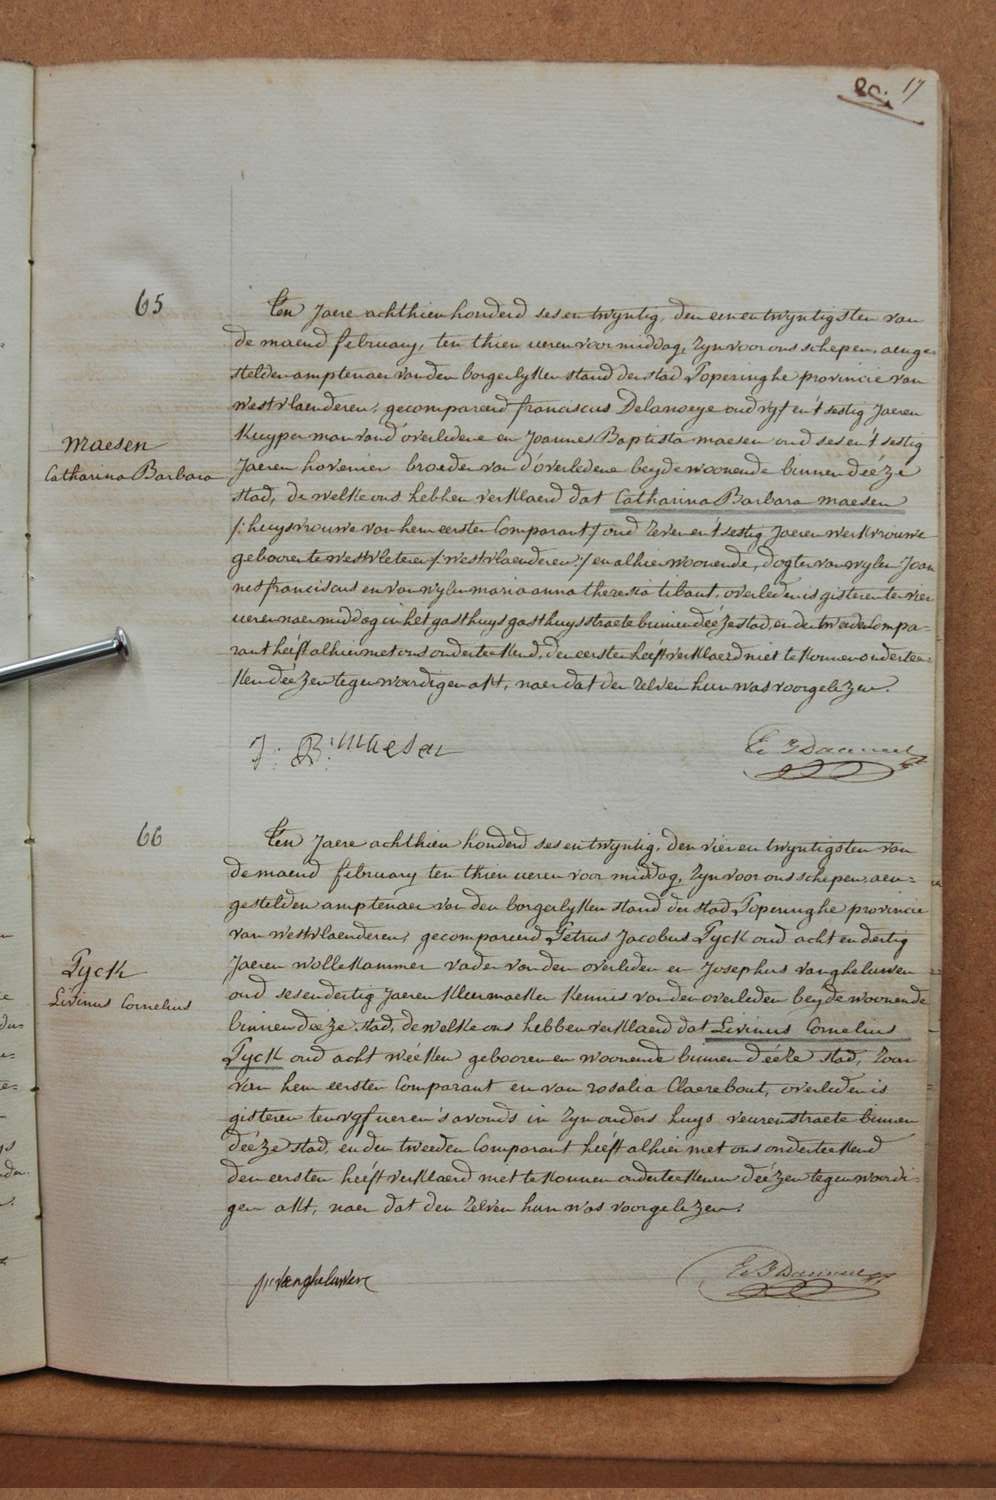 17
65
Maesen
Catharina Barbara
Ten Jaere achthien honderd ses en twyntig, den een en twyntigsten van
de maend february, ten thien ueren voor middag, zyn voor ons schepen, aenge-
stelden amptenaer van den borgerlyken stand der stad Poperinghe provincie van
westvlaenderen, gecompareerd franciscus Delanoeye oud vyf en 't sestig Jaeren
Kuyper man van d'overledene en Joannes Baptista maesen oud ses en 't sestig
Jaeren hovenier broeder van d'overledene beyde woonende binnen deéze
stad, de welke ons hebben verklaerd dat Catharina Barbara maesen
/: huysvrouwe van hem eersten Comparant :/ oud zeven en 't sestig Jaeren werkvrouwe
gebooren te westvleteren /: westvlaenderen :/ en alhier woonende, dogter van wylen Joan
nes franciscus en van wylen maria anna theresia tibaut, overleden is gisteren ten vier
ueren naer middag in het gasthuys gasthuysstraete binnen deéze stad, en den tweeden Compa-
rant heéft alhier met ons onderteekend, den eersten heéft verklaerd niet te konnen onderteé-
kenen deézen tegenwoordigen akt, naer dat den zelven hun was voorgelezen.
J: B: Maesen
66
Tyck
Livinus Cornelius
Ten Jaere achthien honderd ses en twyntig, den vier en twyntigsten van
de maend february ten thien ueren voor middag, zyn voor ons schepen, aen-
gestelden amptenaer van den borgerlyken stand der stad Poperinghe provincie
van westvlaenderen, gecompareerd Petrus Jacobus Tyck oud acht en dertig
Jaeren wollekammer vader van den overleden en Josephus vangheluwen
oud ses en dertig Jaeren kleermaeker kennis van den overleden beyde woonende
binnen deéze stad, de welke ons hebben verklaerd dat Livinus Cornelius
Tyck oud acht weéken gebooren en woonende binnen deéze stad, zoon
van hem eersten Comparant en van rosalia Claerebout, overleden is
gisteren ten vyf ueren 's avonds in zyn ouders huys veurenstraete binnen
deéze stad, en den tweeden Comparant heéft alhier met ons onderteekend
den eersten heéft verklaerd niet te konnen onderteekenen deézen tegenwoordi-
gen akt, naer dat den zelven hun was voorgelezen.